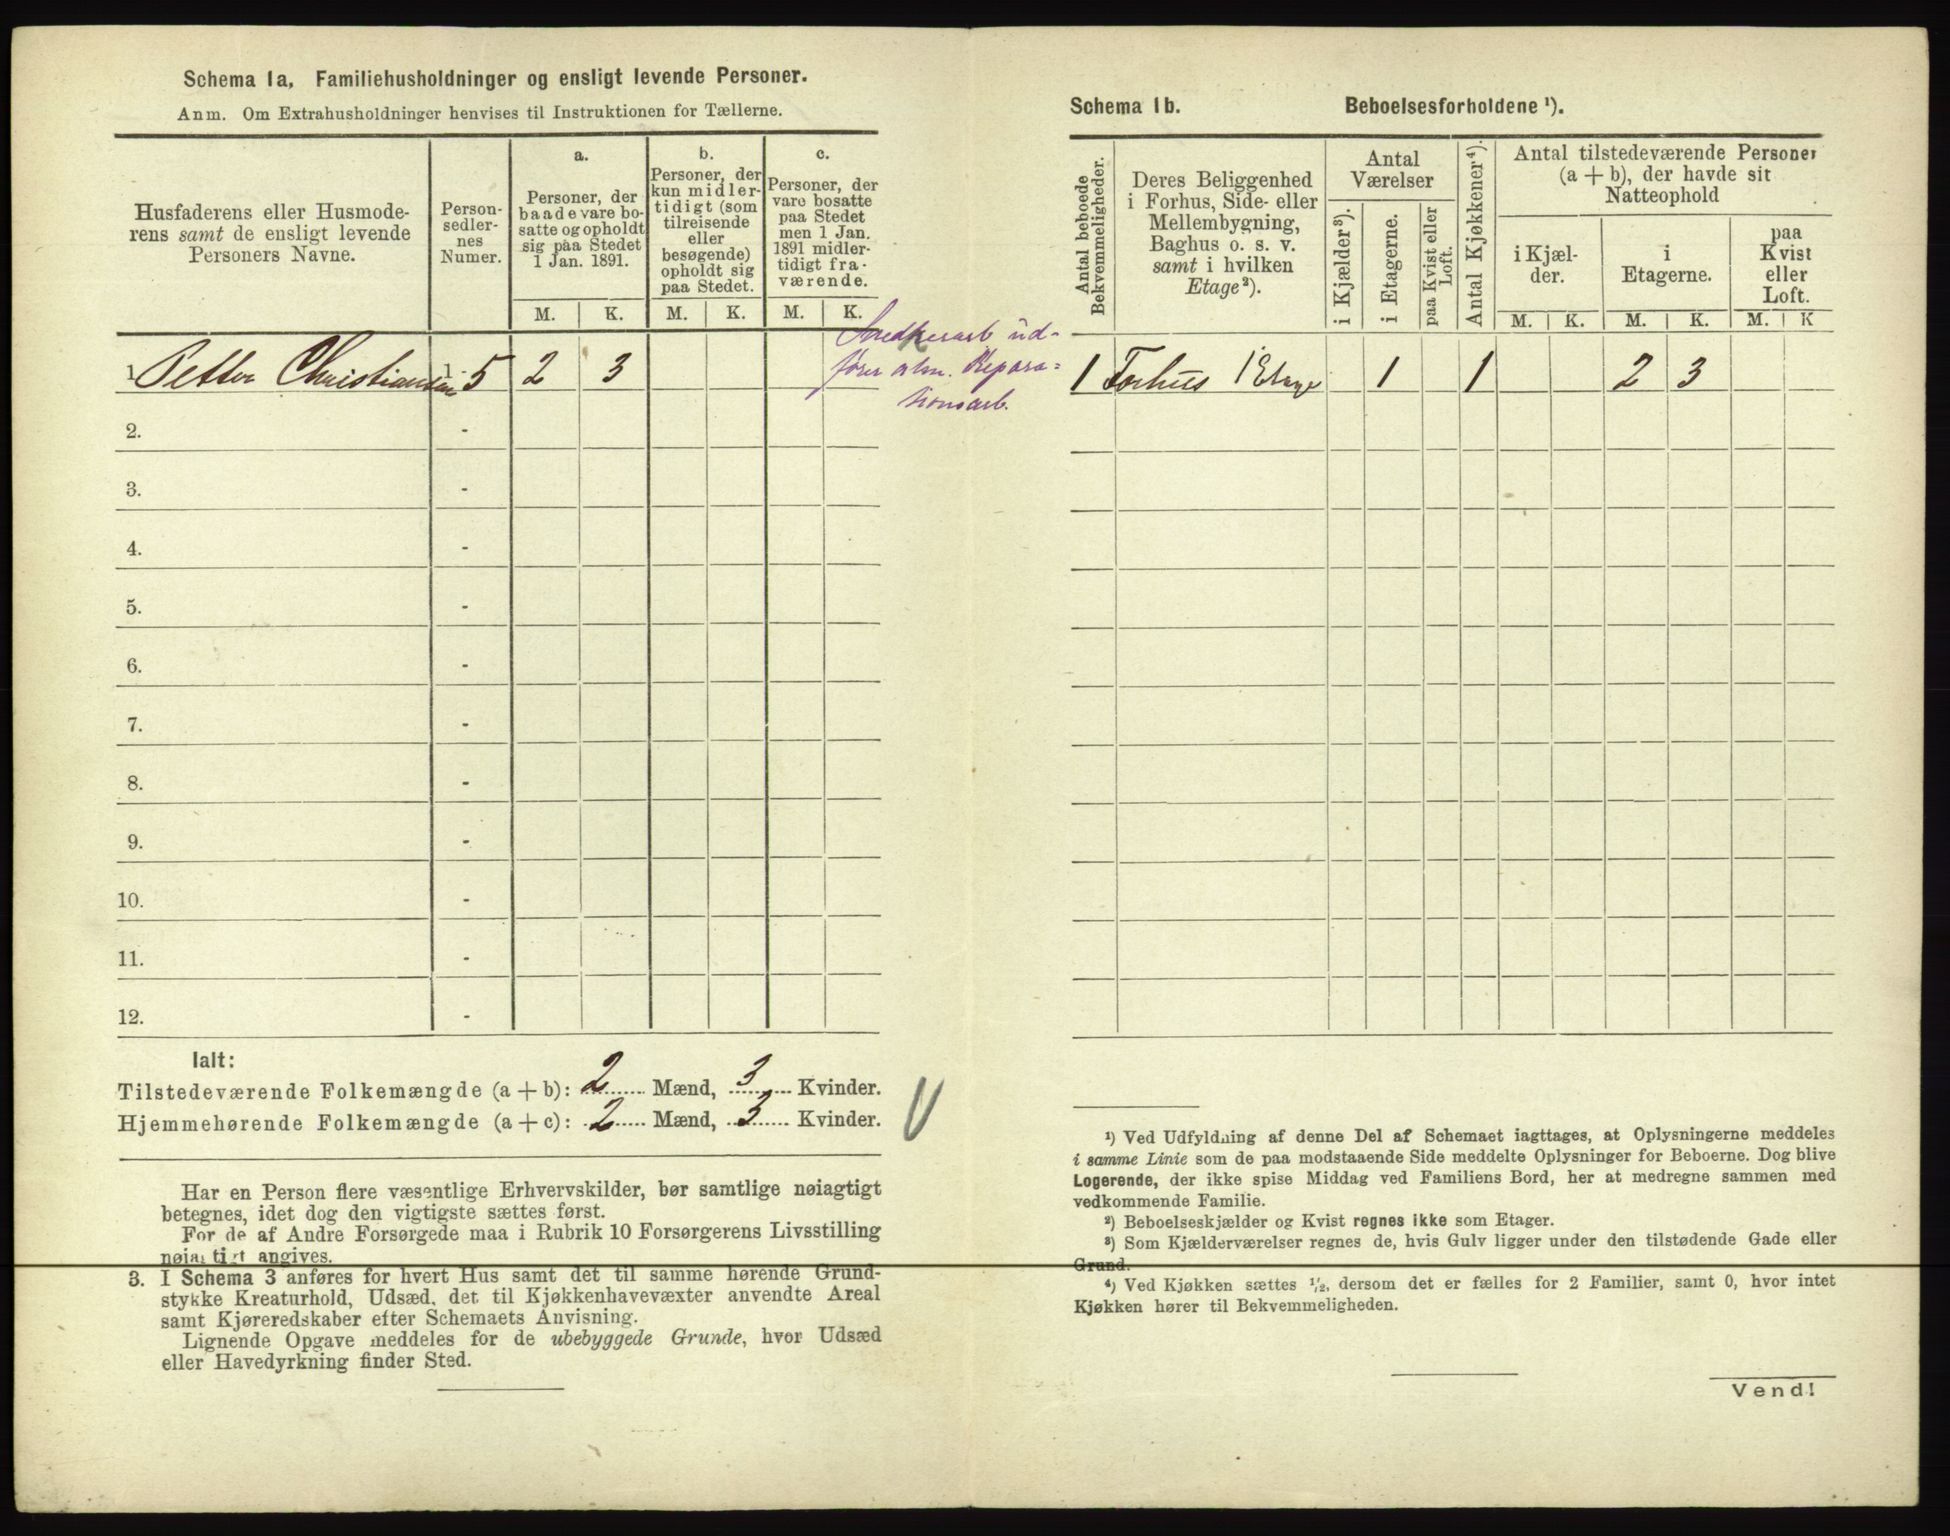 Schema 1a, Familiehusholdninger og ensligt levende Personer.
Anm. Om Extrahusholdninger henvises til Instruktionen for Tællerne.
Husfaderens eller Husmode-
rens samt de ensligt levende
Personers Navne.
Person-
sedler-
nes
Numer.
a.
Personer, der
baade vare bo-
satte og opholdt
sig paa Stedet
1 Jan. 1891.
b.
Personer, der
kun midler-
tidigt (som
tilreisende
eller
besøgende)
opholdt sig
paa Stedet.
c.
Personer, der
vare bosatte
paa Stedet
men 1 Jan.
1891 midler-
tidigt fra-
værende.
M. K. M. K. M. K.
1. Petter Christiansen 1 - 5 2 3
Snedkerarb ud-
fører alm. Repara-
tionsarb.
2. -
3. -
4. -
5. -
6. -
7. -
8. -
9. -
10. -
11. -
12. -
Ialt:
Tilstedeværende Folkemængde (a + b): 2 Mænd, 3 Kvinder.
Hjemmehørende Folkemængde (a + c): 2 Mænd, 3 Kvinder.
Har en Person flere væsentlige Erhvervskilder, bør samtlige nøiagtigt
betegnes, idet dog den vigtigste sættes først.
For de af Andre Forsørgede maa i Rubrik 10 Forsørgerens Livsstilling
nøiagtigt angives.
3. I Schema 3 anføres for hvert Hus samt det til samme hørende Grund-
stykke Kreaturhold, Udsæd, det til Kjøkkenhavevæxter anvendte Areal
samt Kjøreredskaber efter Schemaets Anvisning.
Lignende Opgave meddeles for de ubebyggede Grunde, hvor Udsæd
eller Havedyrkning finder Sted.
Schema 1b. Beboelsesforholdene ¹).
Antal beboede
Bekvemmeligheder.
Deres Beliggenhed
i Forhus, Side- eller
Mellembygning,
Baghus o. s. v.
samt i hvilken
Etage²).
Antal
Værelser
i Kjælder³).
i Etagerne.
paa Kvist eller
Loft.
Antal Kjøkkener⁴).
Antal tilstedeværende Personer
(a + b), der havde sit
Natteophold
i Kjæl-
der.
i
Etagerne.
paa
Kvist
eller
Loft.
M. K. M. K. M. K
1 Forhus 1 Etage 1 1 2 3
¹) Ved Udfyldning af denne Del af Schemaet iagttages, at Oplysningerne meddeles
i samme Linie som de paa modstaaende Side meddelte Oplysninger for Beboerne. Dog blive
Logerende, der ikke spise Middag ved Familiens Bord, her at medregne sammen med
vedkommende Familie.
²) Beboelseskjælder og Kvist regnes ikke som Etager.
³) Som Kjælderværelser regnes de, hvis Gulv ligger under den tilstødende Gade eller
Grund.
⁴) Ved Kjøkken sættes ½, dersom det er fælles for 2 Familier, samt 0, hvor intet
Kjøkken hører til Bekvemmeligheden.
Vend!